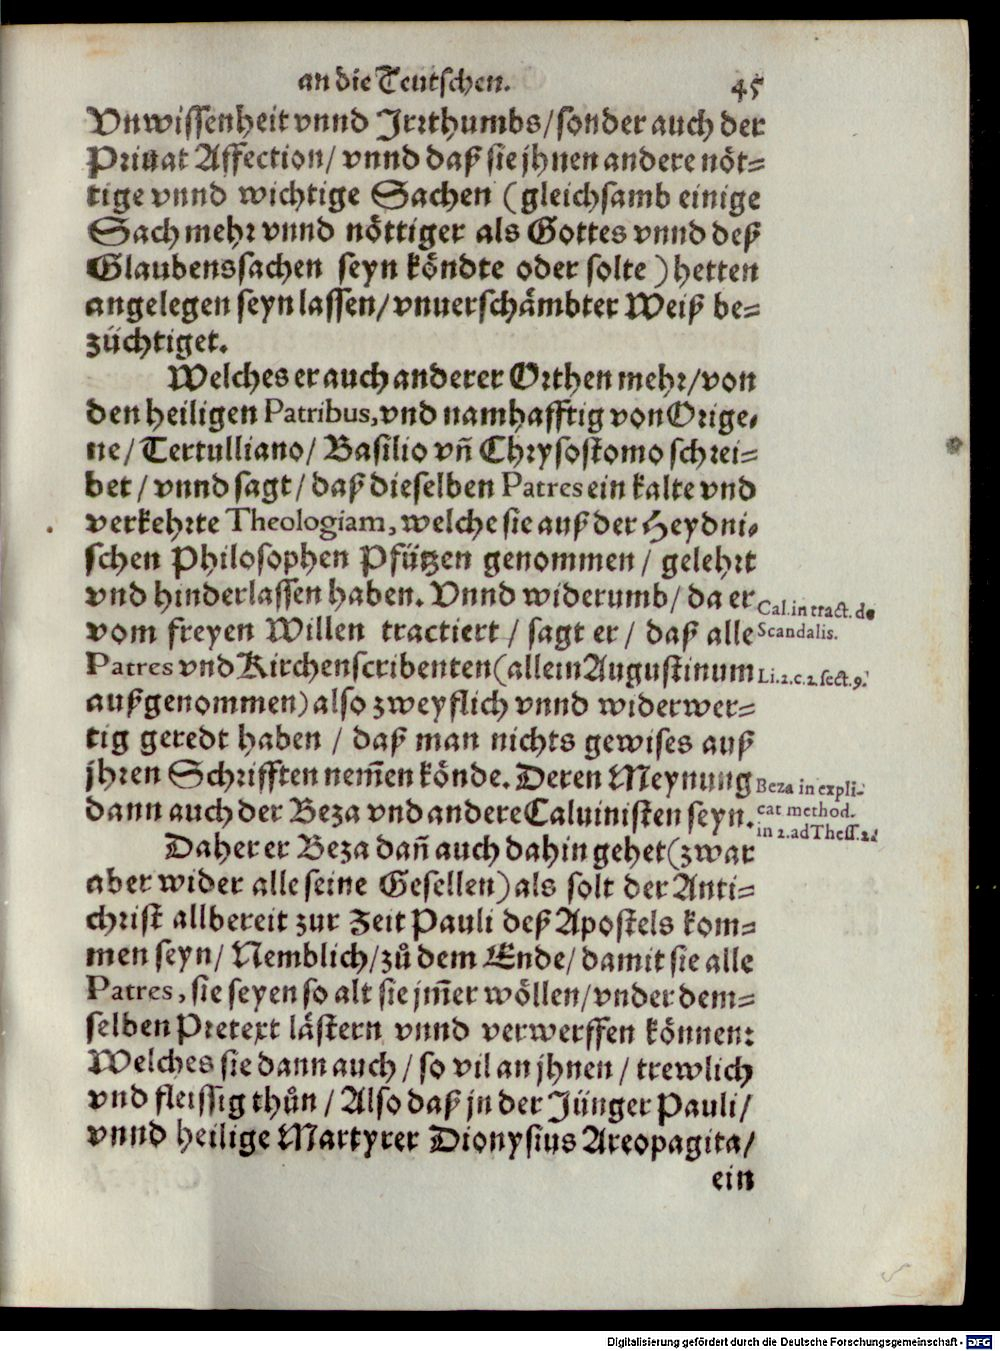 an die Teutschen. 45
Vnwissenheit vnnd Jrrthumbs/sonder auch der
Priuat Affection/ vnnd daß sie jhnen andere nöt-
tige vnnd wichtige Sachen (gleichsamb einige
Sach mehr vnnd nöttiger als Gottes vnnd deß
Glaubenssachen seyn köndte oder solte) hetten
angelegen seyn lassen/ vnuerschämbter Weiß be-
züchtiget.
Welches er auch anderer Orthen mehr/von
den heiligen Patribus, vnd namhafftig von Orige-
ne/ Tertulliano/ Basilio vñ Chrysostomo schrei-
bet/ vnnd sagt/ daß dieselben Patres ein kalte vnd
verkehrte Theologiam, welche sie auß der Heydni-
schen Philosophen Pfützen genommen/ gelehrt
vnd hinderlassen haben. Vnnd widerumb/ da er
Cal. in tract. de
vom freyen Willen tractiert/ sagt er/ daß alle
Scandalis.
Patres vnd Kirchenscribenten (allein Augustinum
Li. 2. c. 2. sect. 9.
außgenommen) also zweyflich vnnd widerwer-
tig geredt haben/ daß man nichts gewises auß
jhren Schrifften nem̃en könde. Deren Meynung
Beza in expli-
dann auch der Beza vnd andere Caluinisten seyn.
cat method.
in 2. ad Thess. 2.
Daher er Beza dañ auch dahin gehet (zwar
aber wider alle seine Gesellen) als solt der Anti-
christ allbereit zur Zeit Pauli deß Apostels kom-
men seyn/ Nemblich/ zů dem Ende/ damit sie alle
Patres, sie seyen so alt sie jm̃er wöllen/ vnder dem-
selben Pretext lästern vnnd verwerffen können:
Welches sie dann auch/ so vil an jhnen/ trewlich
vnd fleissig thůn/ Also daß jn der Jünger Pauli/
vnnd heilige Martyrer Dionysius Areopagita/
ein
Digitalisierung gefördert durch die Deutsche Forschungsgemeinschaft - DFG